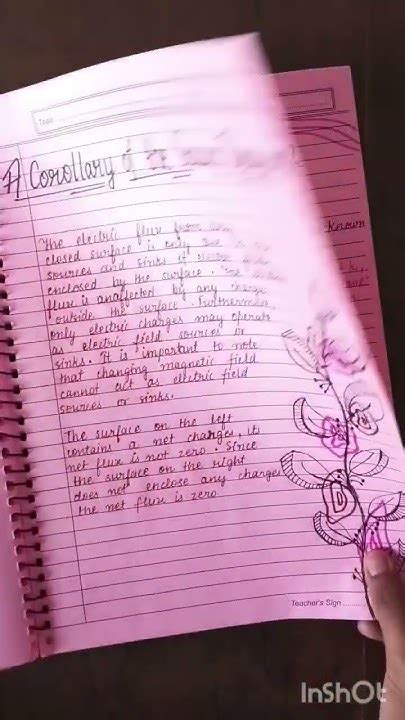 Topic
A Corollary of
known
The electric flux from
closed surface is only
sources and sinks
enclosed by the surface. The
flux is anaffected by any charge
outside the surface. Furthermore
only electric charges may operate
as electric field sources or
sinks. It is important to note
that changing magnetic field
cannot act as electric field
sources or sinks.
The surface on the left
contains a net charges, its
net flux is not zero. Since
the surface on the right
does not enclose any charges
the net flux is zero
Teacher's Sign ........
InShOt